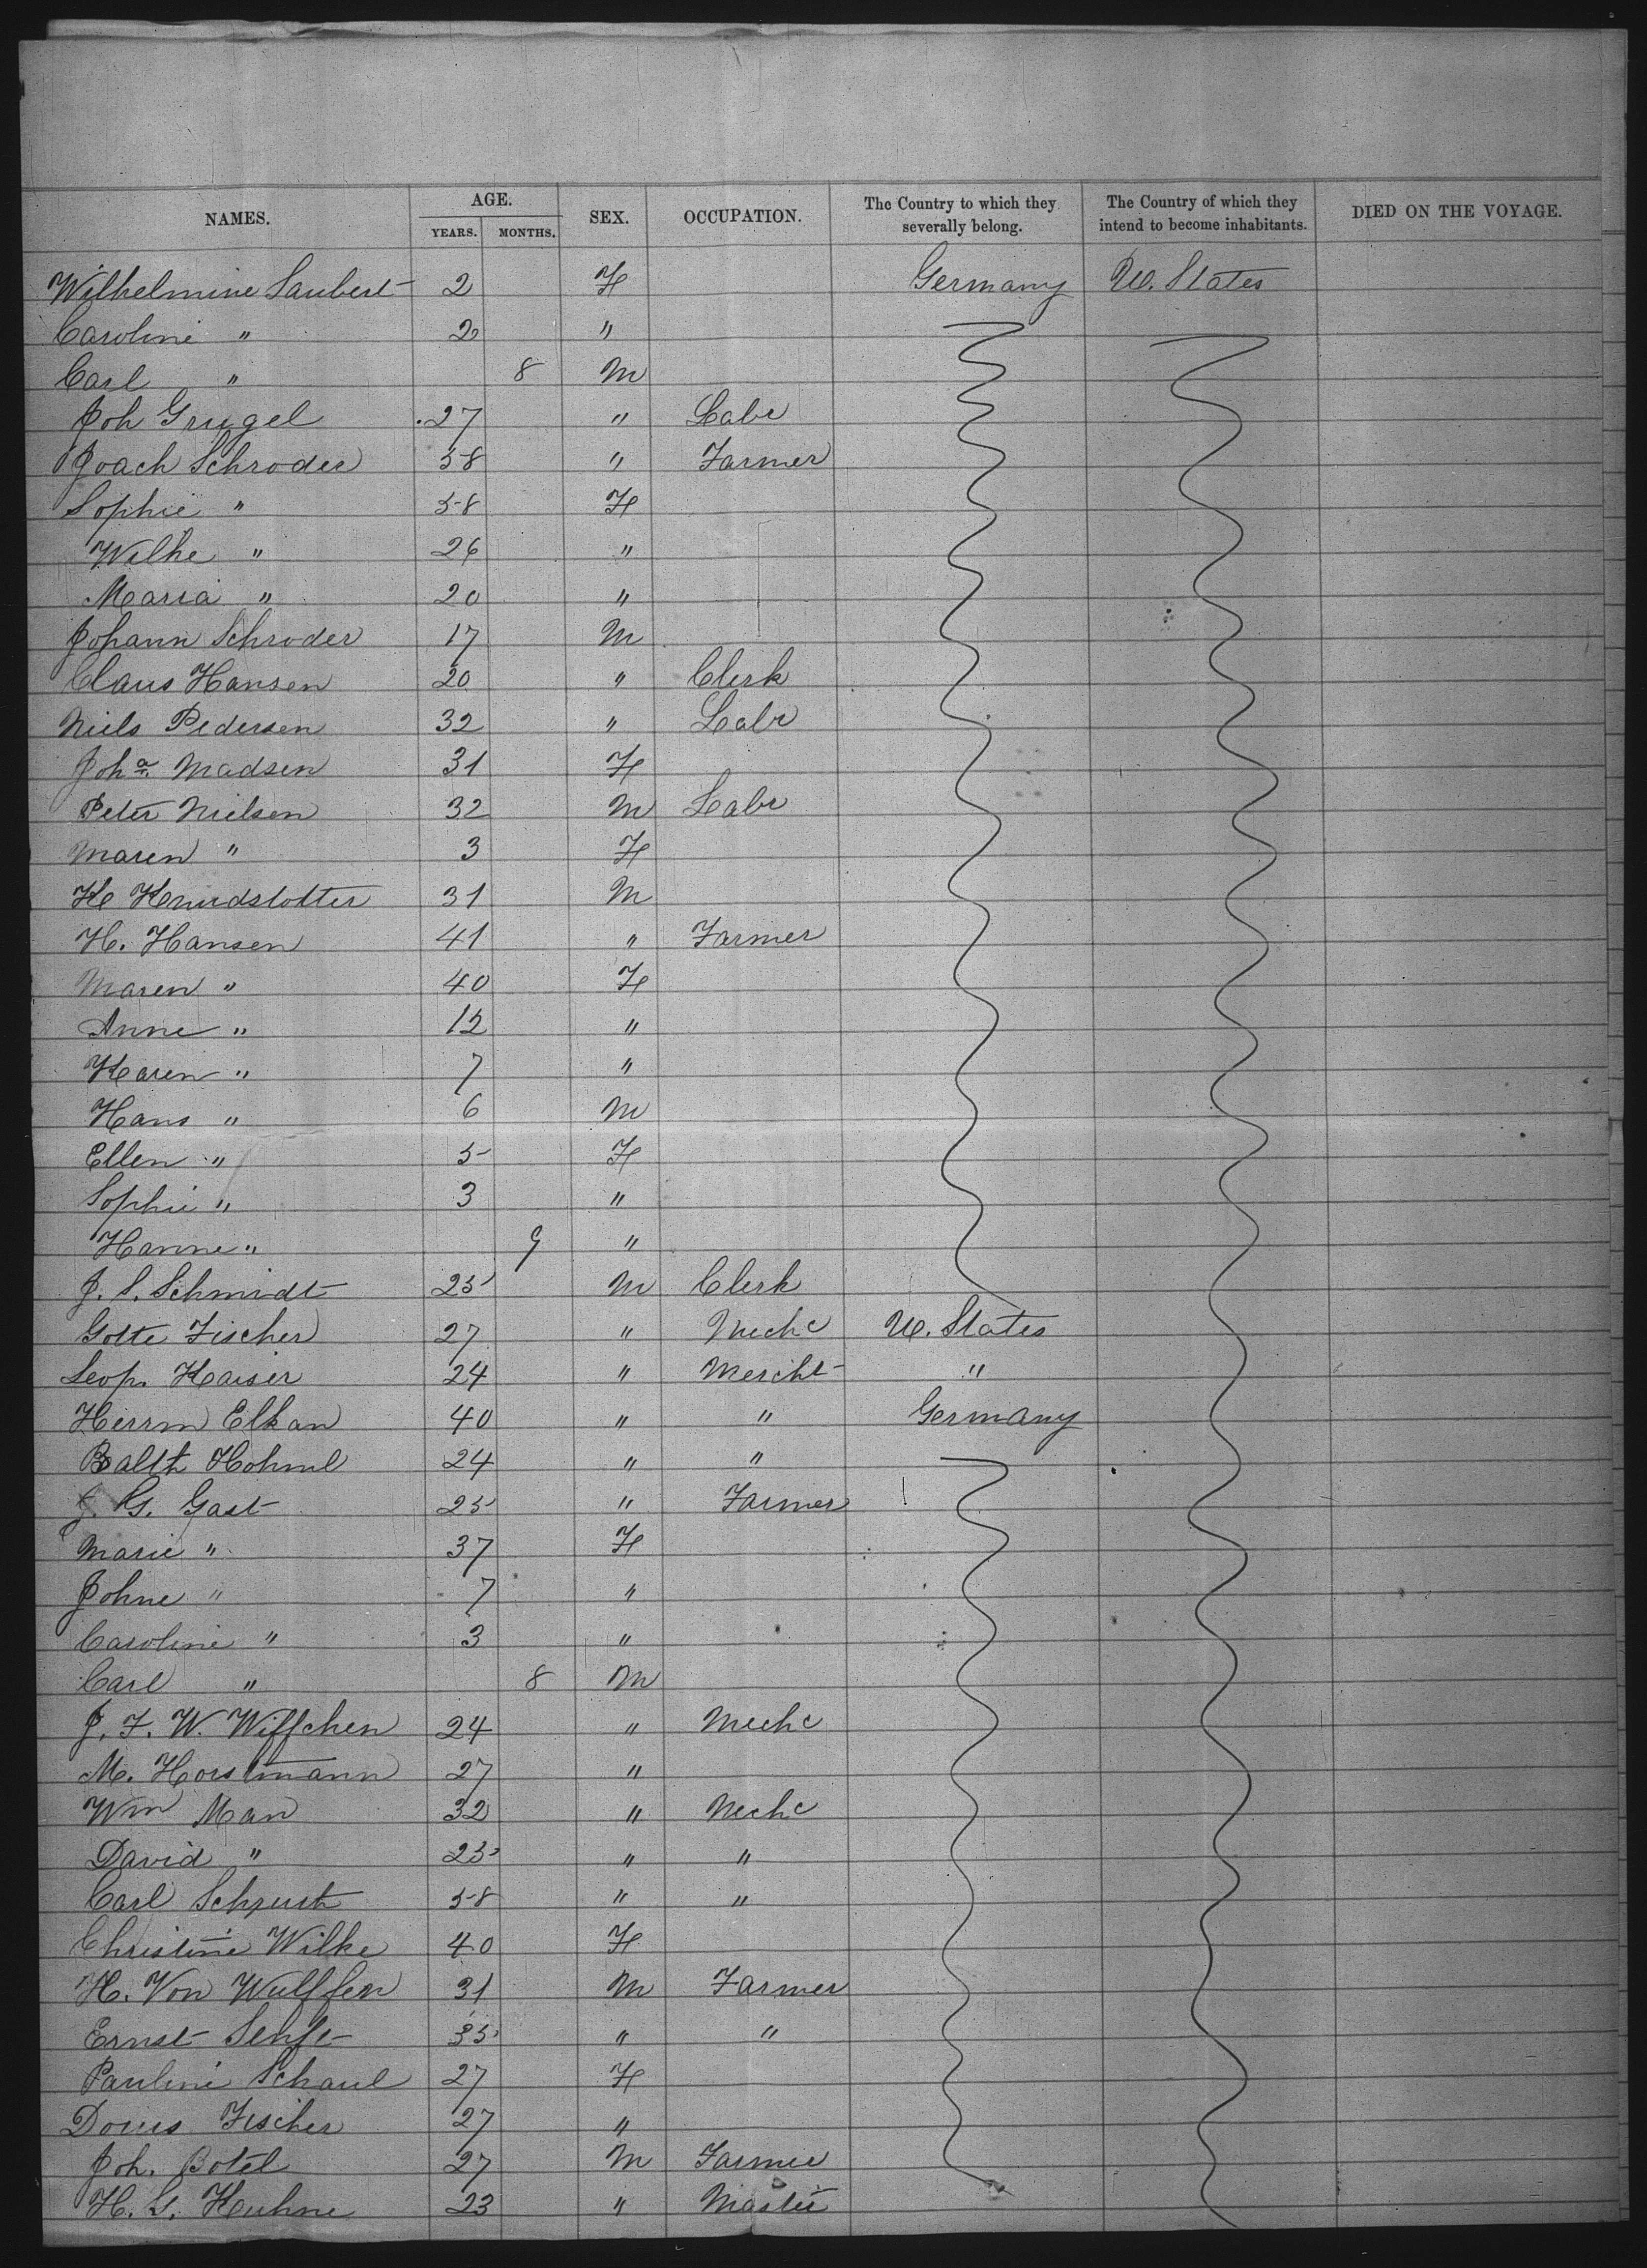 NAMES. AGE. SEX. OCCUPATION. The Country to which they severally belong. The Country of which they intend to become inhabitants. DIED ON THE VOYAGE.
YEARS. MONTHS.
Wilhelmine Saubert 2 F Germany U. States
Caroline " 2 "
Carl " 8 M
Joh Grugel 27 " Labr
Joach Schroder 58 " Farmer
Sophie " 58 F
Wilhe " 26 "
Maria " 20 "
Johann Schroder 17 M
Claus Hansen 20 " Clerk
Niels Pedersen 32 " Labr
Joha Madsen 31 F
Peter Nielsen 32 M Labr
Maren " 3 F
K Knudstotter 31 M
H. Hansen 41 " Farmer
Maren " 40 F
Anne " 12 "
Karen " 7 "
Hans " 6 M
Ellen " 5 F
Sophie " 3 "
Hanne " 9 "
J. S. Schmidt 25 M Clerk
Gotte Fischer 27 " Mechc U. States
Leop. Kaiser 24 " Mercht "
Herrm Elkan 40 " " Germany
Balth Hohml 24 " "
J. G. Gast 25 " Farmer
Marie " 37 F
Johne " 7 "
Caroline " 3 "
Carl " 8 M
J. F. W. Wiffchen 24 " Mechc
M. Horstmann 27 "
Wm Man 32 " Mechc
David " 25 " "
Carl 58 " "
Christine Wilke 40 F
H. Von Wulffen 31 M Farmer
Ernst Senft 35 " "
Pauline Schaul 27 F
Doris Fischer 27 "
Joh. Botel 27 M Farmer
H. G. Kuhne 23 "